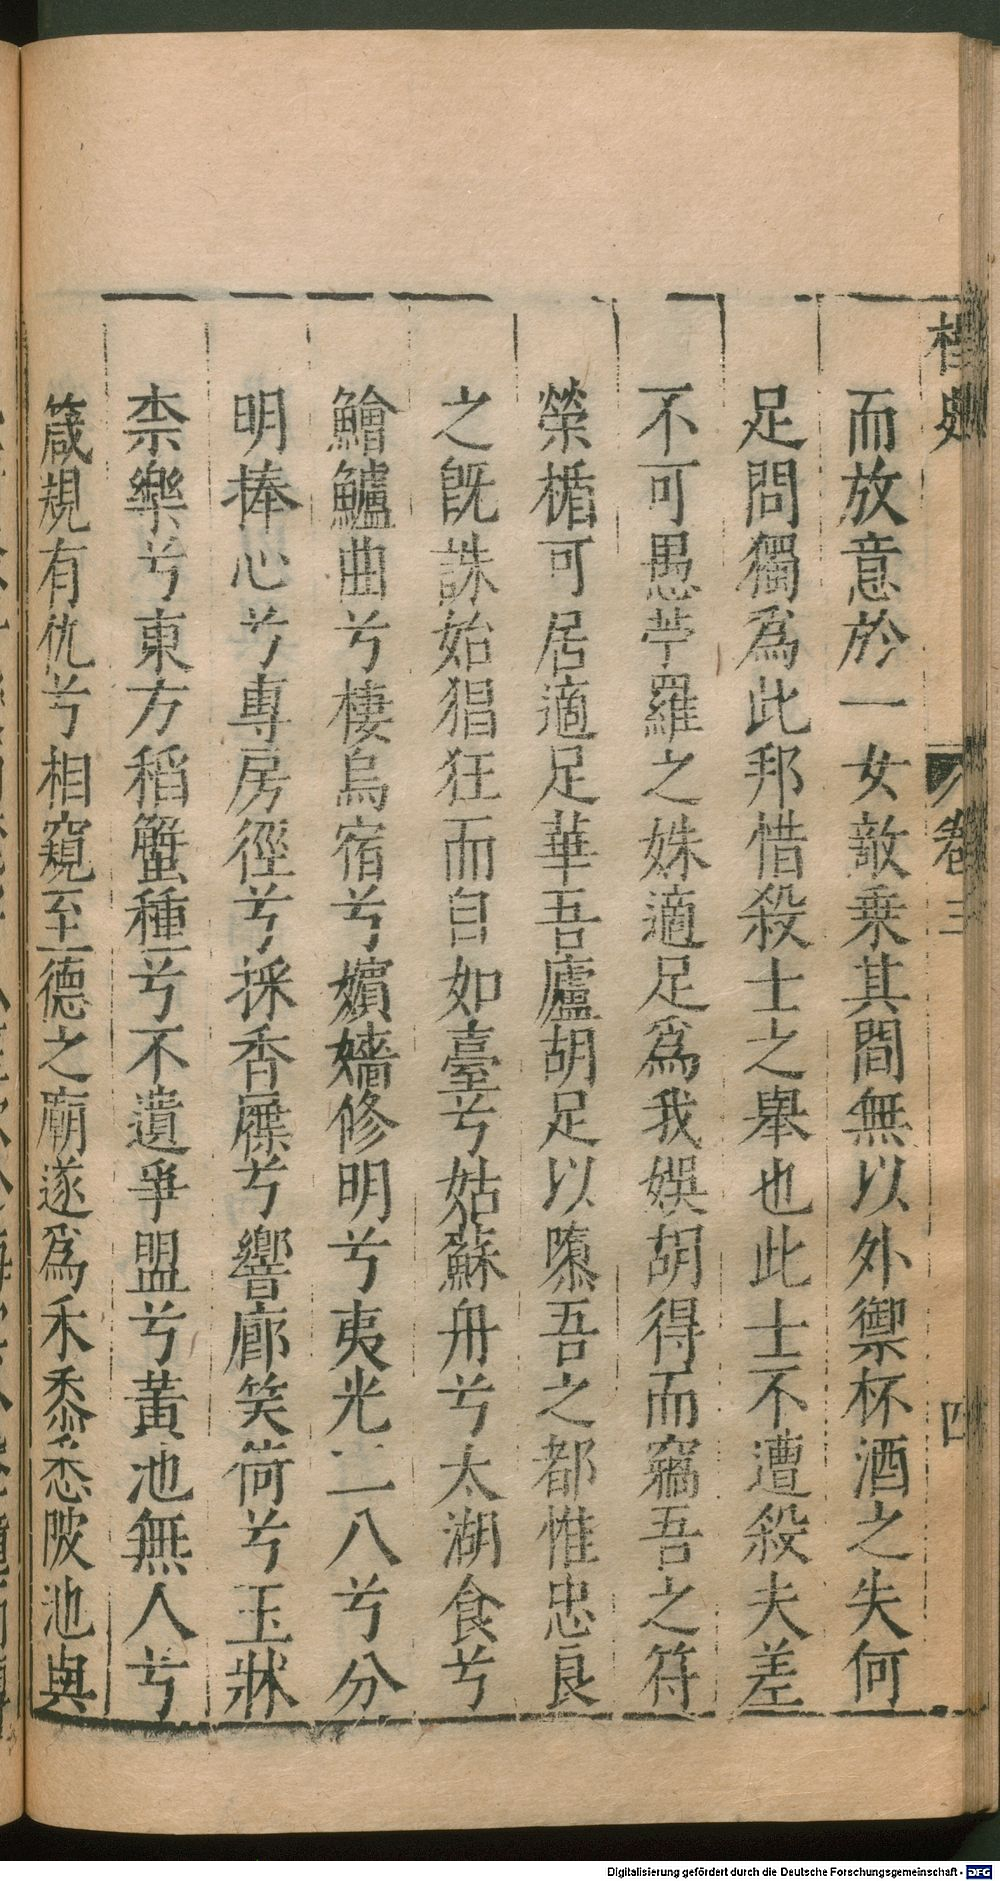 卷三
四
而放意於一女敵乗其間無以外禦杯酒之失何
足問獨爲此邦惜殺士之舉也此士不遭殺夫差
不可愚苧羅之姝適足爲我娯胡得而竊吾之符
榮楯可居適足華吾廬胡足以隳吾之都惟忠良
之既誅始猖狂而自如臺兮姑蘇舟兮太湖食兮
鱠鱸曲兮棲烏宿兮嬪嬙修明兮夷光二八兮分
明捧心兮專房徑兮採香屧兮響廊笑荷兮玉牀
柰樂兮東方稻蟹種兮不遺爭盟兮黃池無人兮
箴規有仇兮相窺至德之廟遂爲禾黍悉陂池與
Digitalisierung gefördert durch die Deutsche Forschungsgemeinschaft - DFG